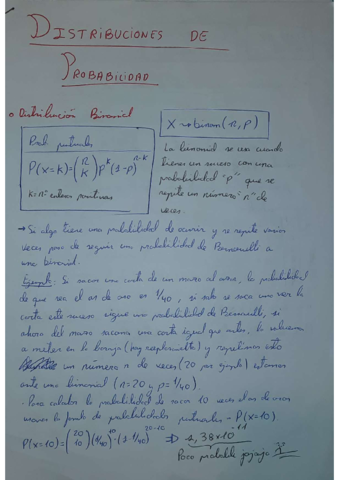 DISTRIBUCIONES DE
PROBABILIDAD
Distribución Binomial
X → binom(n, p)
Prob. puntuales
P(X=k) = (n k) p^k (1-p)^n-k
k: nº valores positivos
La binomial se usa cuando
tienes un suceso con una
probabilidad "p" que se
repite un número "n" de
veces.
→ Si algo tiene una probabilidad de ocurrir y se repite varias
veces pasa de seguir una probabilidad de Bernouilli a
una binomial.
Ejemplo: Si sacas una carta de un mazo al azar, la probabilidad
de que sea el as de oros es 1/40, si solo se saca una vez la
carta este suceso sigue una probabilidad de Bernouilli, si
ahora del mazo sacamos una carta igual que antes, la volvemos
a meter en la baraja (hay reemplazamiento) y repetimos esto
un número n de veces (20 por ejemplo) estamos
ante una binomial (n=20 y p=1/40)
- Para calcular la probabilidad de sacar 10 veces el as de oros
usamos la fórmula de probabilidades puntuales - P(X=10)
P(X=10) = (20 10) (1/40)^10 · (1-1/40)^20-10 ⇒ 1,38x10^-11
Poco probable jajaja